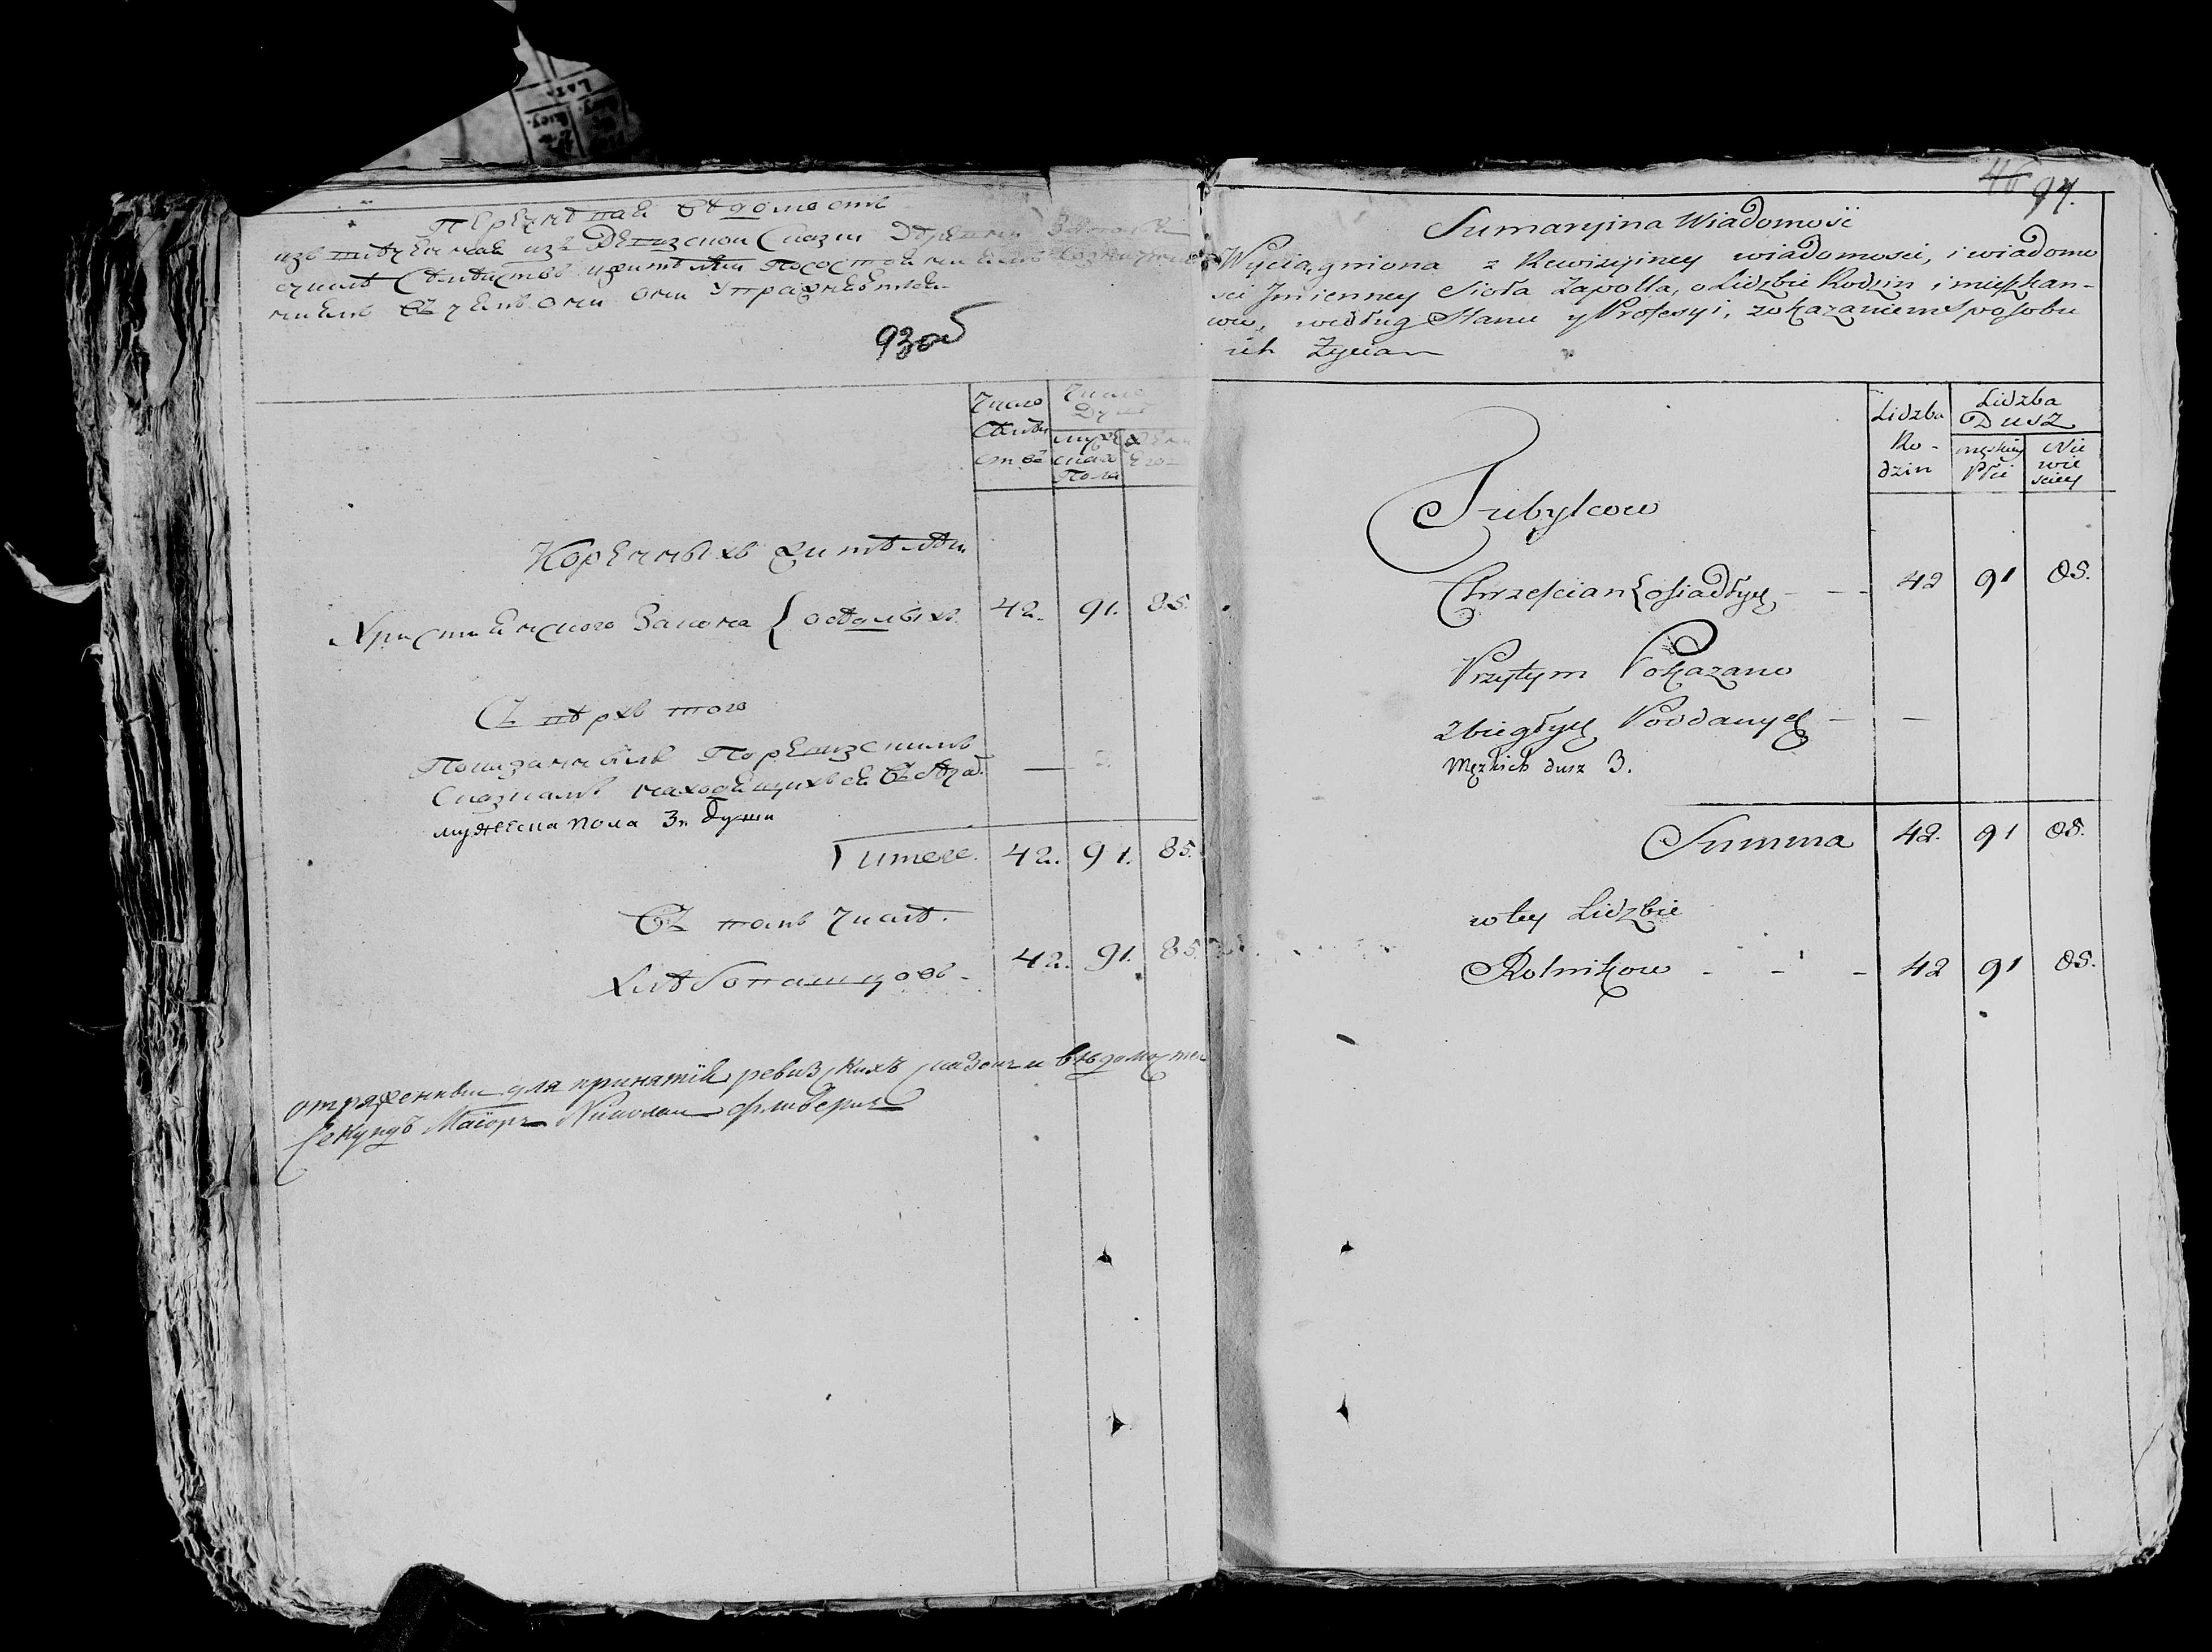 Перечневая ведомость
извлеченная из Ревизской Сказки Деревни
числе Семейств и жителей по состоянием
нием в чем они упражнен
93об
Число
Семей
ств
Число
Душ
муже
ска
Пола
Коренных жителей
Христианского Закона { оседлых 42. 91. 85.
Сверх того
Показанных По ревизским
Сказкам находящихся в
мужеска пола 3 души
Итого. 42. 91. 85.
В том числе.
Хлебопашцов - 42. 91. 85.
отряженный для принятïя ревизскихъ сказокъ и ведомостей
Секундъ Маïоръ Николай
46 94.
Sumaryina Wiadomość
Wyciągniona z Rewizyiney wiadomosci, i wiadomo
sci Jmienney Sioła Zapolla, o Lidzbie Rodzin i mieszkan-
cow, według Stanu y Profesyi, z okazaniem sposobu
ich Zycia
Lidzba
Ro-
dzin
Lidzba
Dusz
męskiey
Płci
Nie
wie
sciey
Tubylcow
Chrzescian { osiadłych - - 42 91 85.
Przytym Pokazano
zbiegłych Poddanych - -
Męzkich dusz 3.
Summa 42. 91 85.
w tey Lidzbie
Rolnikow - - - 42 91 85.